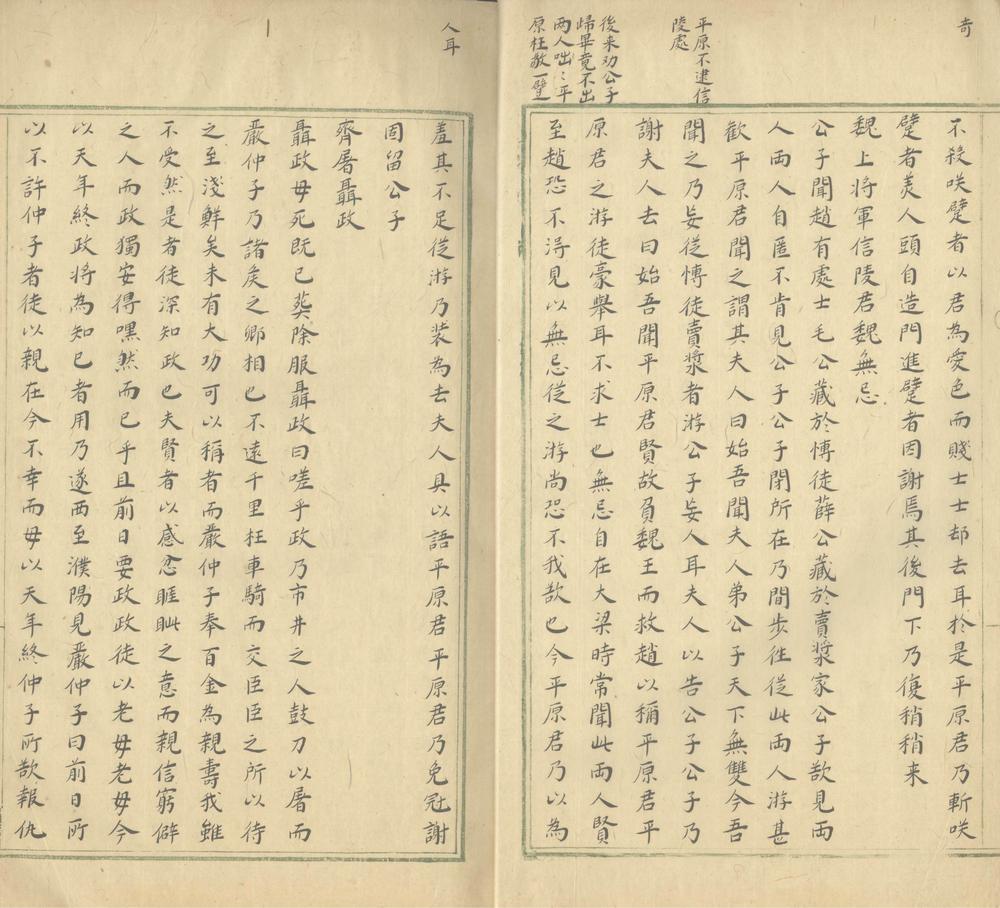 奇
平原不逮信
陵處
後来劝公子
歸畢竟不出
两人咄〻平
原枉殺一嬖
不殺咲躄者以君為愛色而賤士士却去耳於是平原君乃斬咲
躄者美人頭自造門進躄者因謝焉其後門下乃復稍稍来
魏上将軍信陵君魏無忌
公子聞趙有處士毛公藏於愽徒薛公藏於賣漿家公子欲見両
人両人自匿不肯見公子公子閒所在乃間步往從此両人游甚
歡平原君聞之謂其夫人曰始吾聞夫人弟公子天下無雙今吾
聞之乃妄從愽徒賣漿者游公子妄人耳夫人以告公子公子乃
謝夫人去曰始吾聞平原君賢故負魏王而救趙以稱平原君平
原君之游徒豪舉耳不求士也無忌自在大梁時常聞此両人賢
至趙恐不淂見以無忌從之游尚恐不我欲也今平原君乃以為
人耳
羞其不足從游乃装為去夫人具以語平原君平原君乃免冠謝
固留公子
齊屠聶政
聶政毋死既已葬除服聶政曰嗟乎政乃市井之人鼓刀以屠而
嚴仲子乃諸矦之卿相也不遠千里枉車騎而交臣臣之所以待
之至淺鮮矣未有大功可以稱者而嚴仲子奉百金為親壽我雖
不受然是者徒深知政也夫賢者以感忿睚眦之意而親信窮僻
之人而政獨安得嘿然而已乎且前日要政政徒以老毋老毋今
以天年終政将為知已者用乃遂西至濮陽見嚴仲子曰前日所
以不許仲子者徒以親在今不幸而毋以天年終仲子所欲報仇